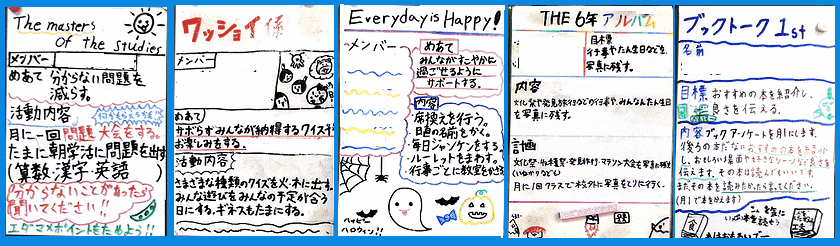 The masters
of the studies
メンバー
めあて 分からない問題を
減らす。
活動内容
月に一回問題大会をする。
たまに朝学活に問題を出す
(算数・漢字・英語)
分からないことがあったら
聞いてください!!
エダマメポイントをためよう!!
ワッショイ係
メンバー
めあて
サボらずみんなが納得するクイズや
お楽しみをする。
活動内容
さまざまな種類のクイズを火・木に出す。
みんな遊びをみんなの予定が合う
日にする。ギネスもたまにする。
Everyday is Happy!
メンバー
めあて
みんながすこやかに
過ごせるように
サポートする。
内容
・席換えを行う。
・日直の名前をかく。
・毎日ジャンケンをする。
・ルーレットをまわす。
・行事ごとに教室をかざる
ハッピー
ハロウィン!!
THE 6年 アルバム
目標
行事やたん生日などを、
写真に残す。
内容
文化祭や発見旅行などの行事や、みんなんたん生日
を写真に残す。
計画
月に1回クラスで校外に写真をとりに行く。
ブックトーク 1st
名前
目標 おすすめの本を紹介し、
良さを伝える。
内容 ブックアンケートを月にします。
後ろの本だなにおすすめの本を紹介
し、おもしろい場面や好きなシーンなど良さを
伝えます。その本は読んでもいいです。
またその本を読みたかったら言ってください。
(月1で本をかえます)